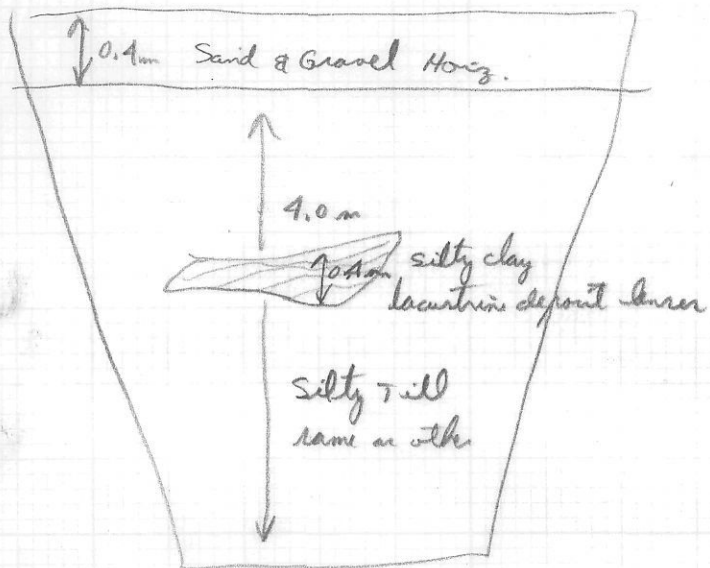 0.4m Sand & Gravel Horiz.
4.0 m
0.4m silty clay
lacustrine deposit lenses
Silty Till
same as other